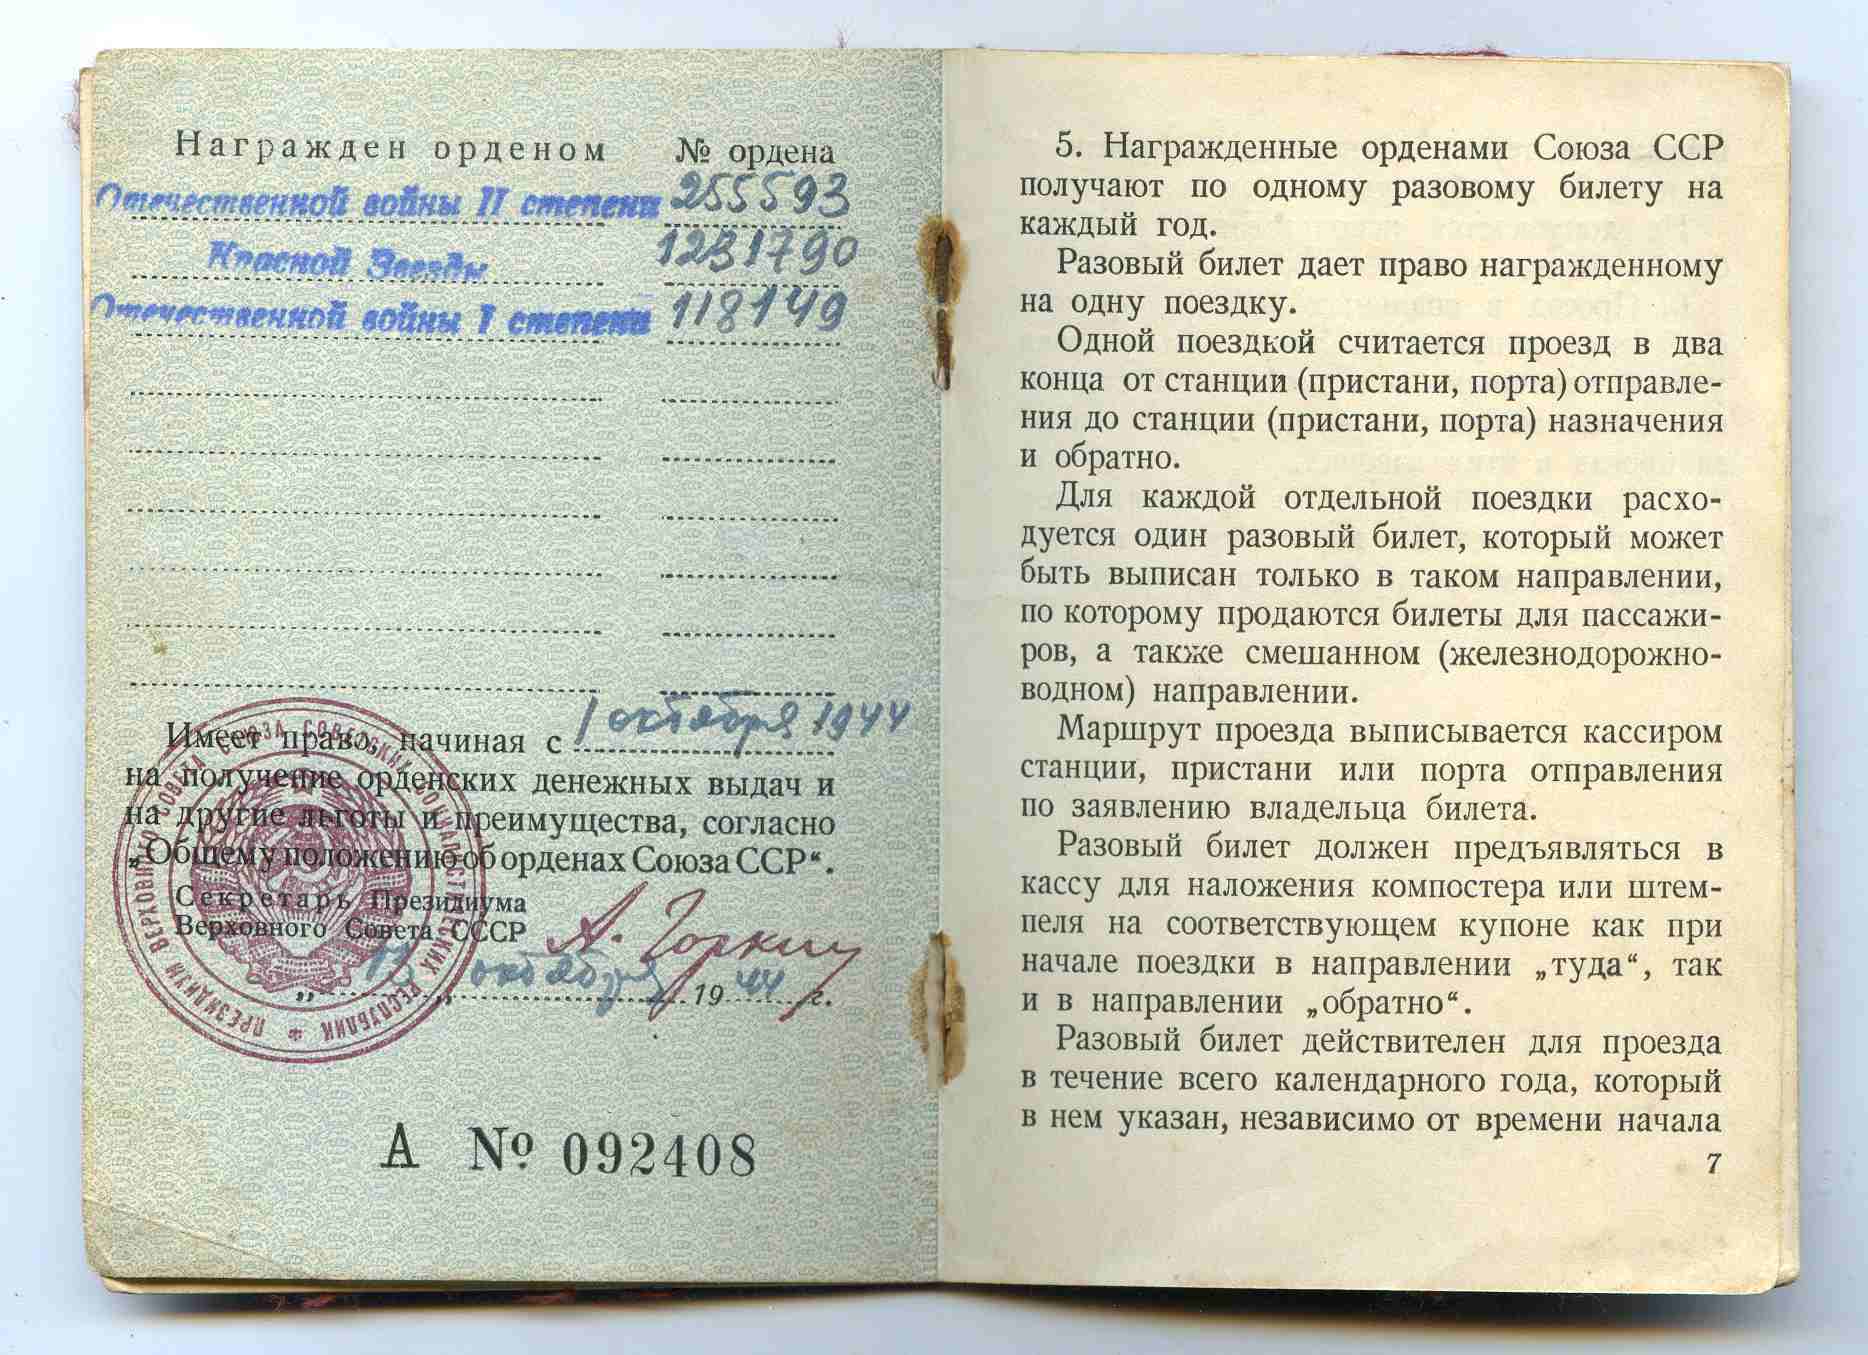 Награжден орденом № ордена
Отечественной войны II степени 255593
Красной Звезды 1231790
Отечественной войны I степени 118149
Имеет право, начиная с 1 октября 1944
на получение орденских денежных выдач и
на другие льготы и преимущества, согласно
„Общему положению об орденах Союза ССР“.
Секретарь Президиума
Верховного Совета СССР А. Горкин
„13 „ октября 1944 г.
ПРЕЗИДИУМ ВЕРХОВНОГО СОВЕТА СОЮЗА СОВЕТСКИХ СОЦИАЛИСТИЧЕСКИХ РЕСПУБЛИК *
А № 092408
5. Награжденные орденами Союза ССР
получают по одному разовому билету на
каждый год.
Разовый билет дает право награжденному
на одну поездку.
Одной поездкой считается проезд в два
конца от станции (пристани, порта) отправле-
ния до станции (пристани, порта) назначения
и обратно.
Для каждой отдельной поездки расхо-
дуется один разовый билет, который может
быть выписан только в таком направлении,
по которому продаются билеты для пассажи-
ров, а также смешанном (железнодорожно-
водном) направлении.
Маршрут проезда выписывается кассиром
станции, пристани или порта отправления
по заявлению владельца билета.
Разовый билет должен предъявляться в
кассу для наложения компостера или штем-
пеля на соответствующем купоне как при
начале поездки в направлении „туда“, так
и в направлении „обратно“.
Разовый билет действителен для проезда
в течение всего календарного года, который
в нем указан, независимо от времени начала
7